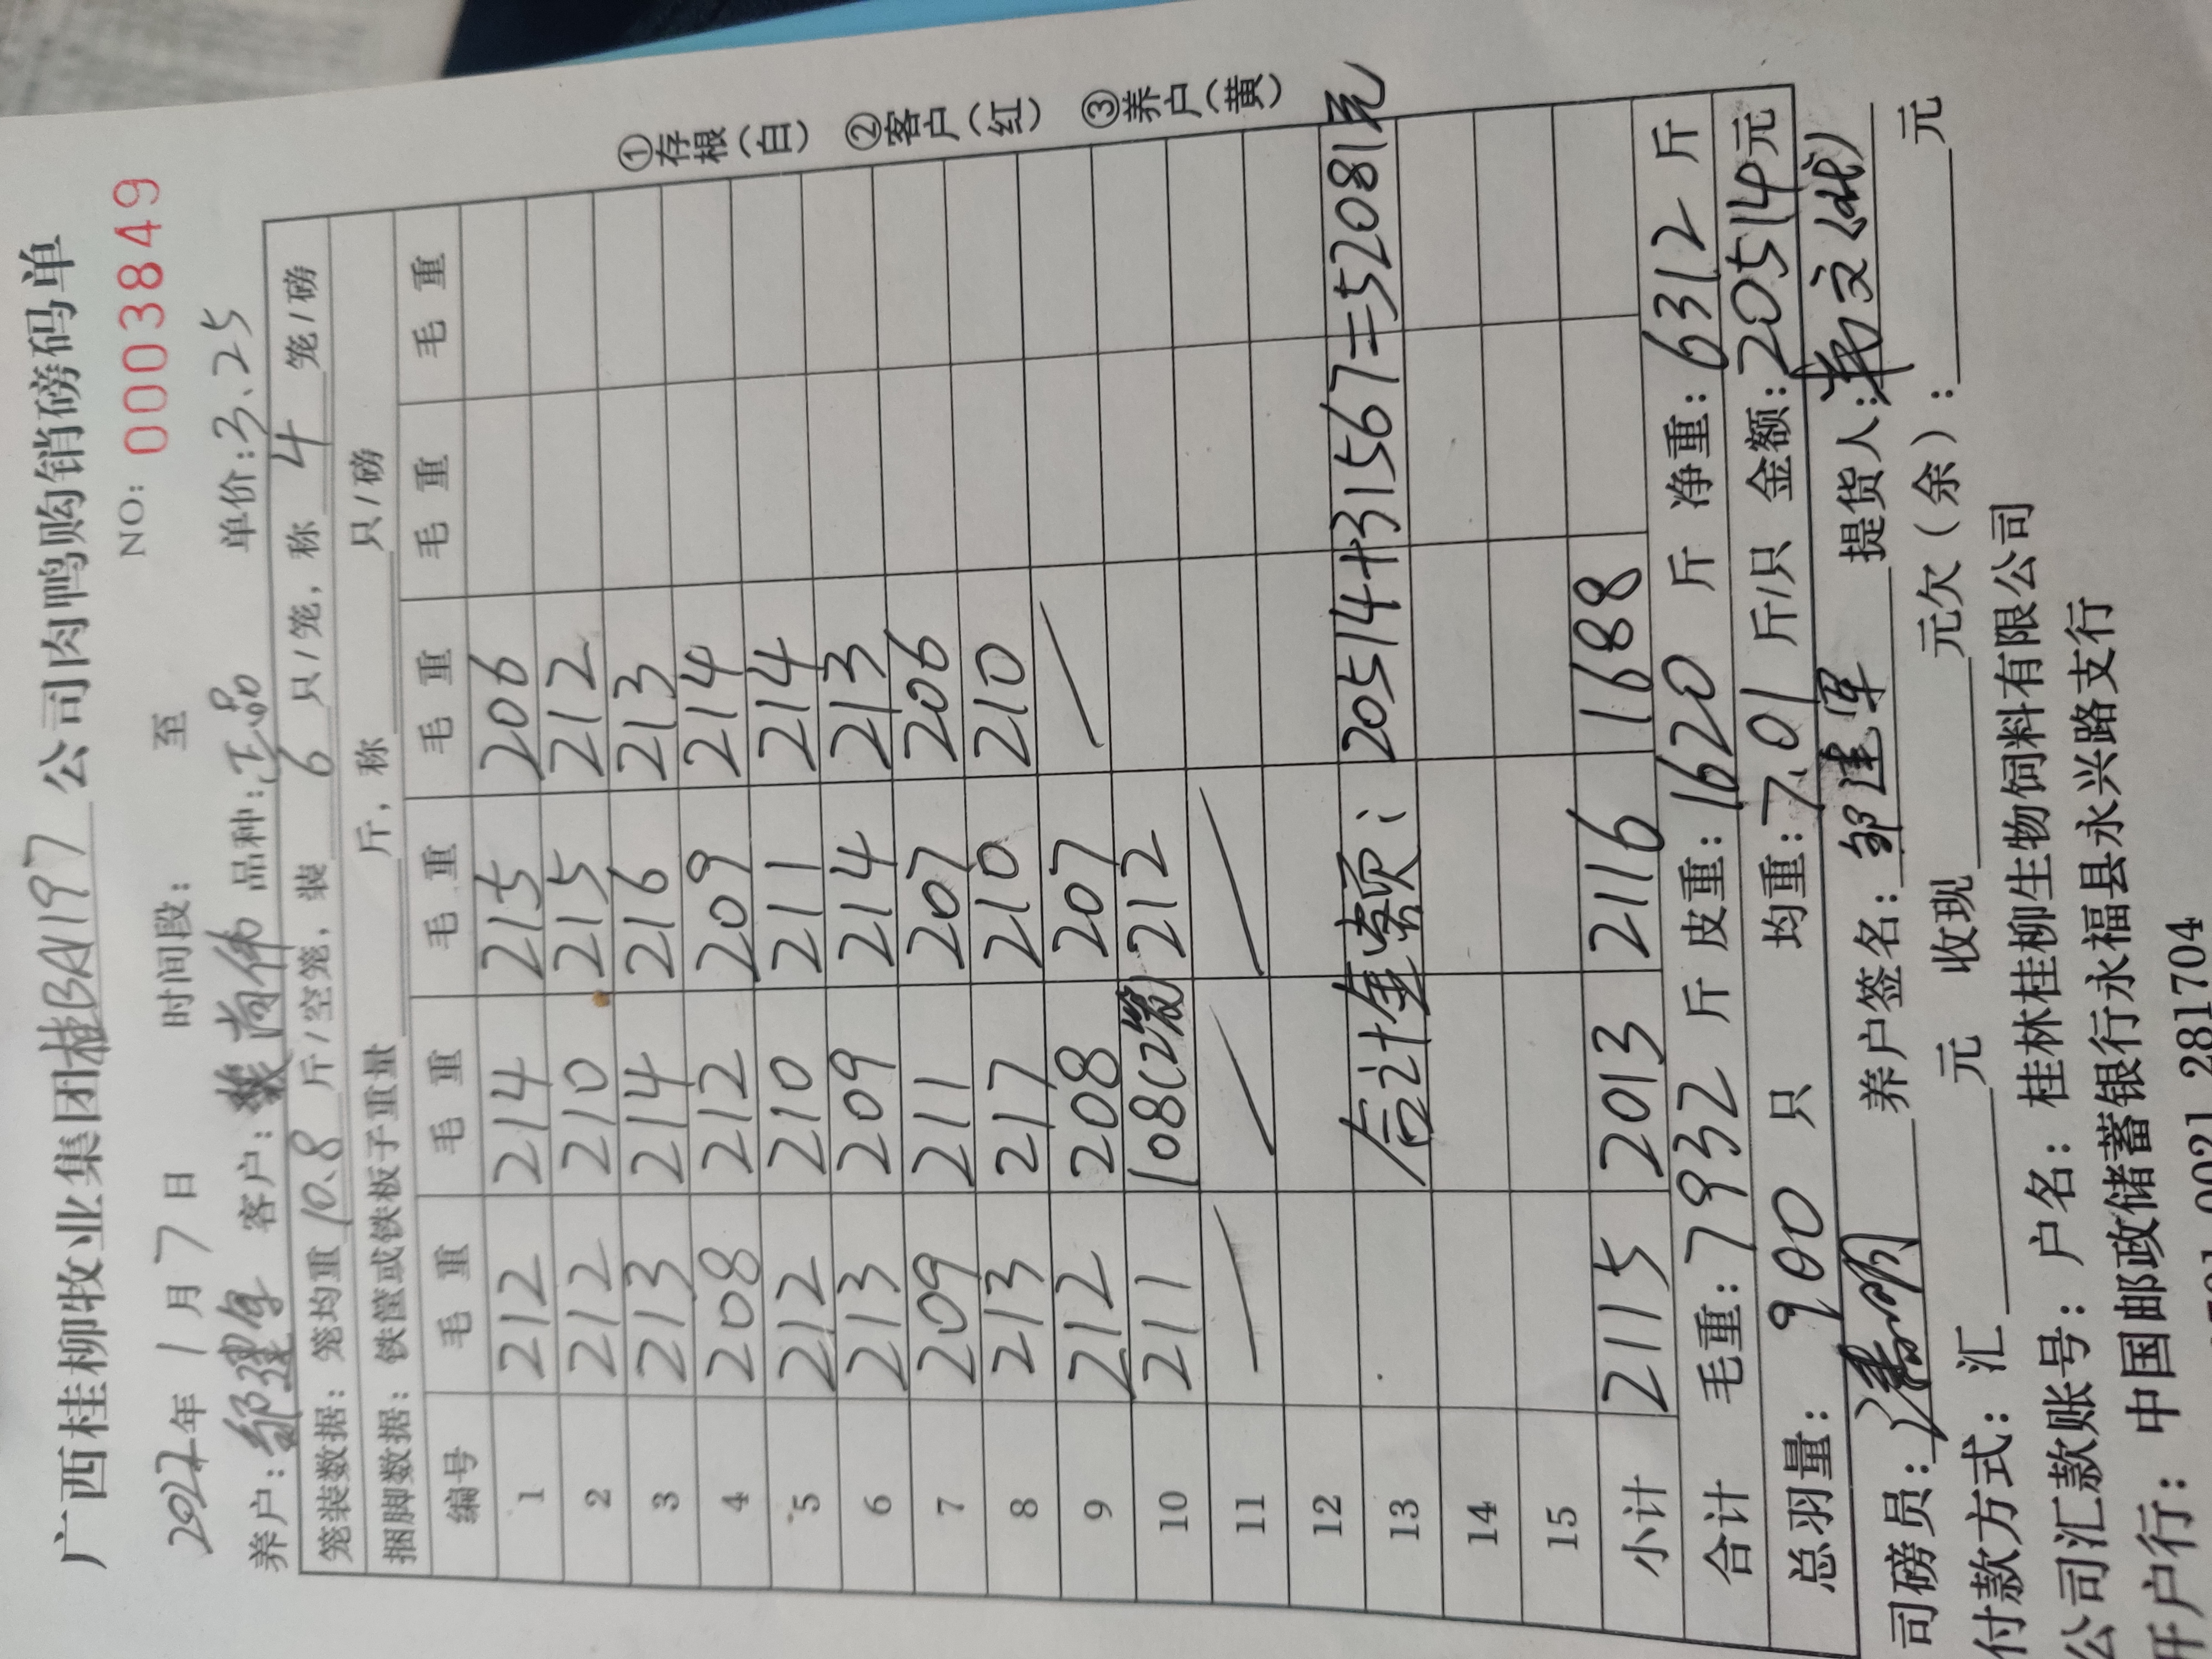 广西桂柳牧业集团桂BAV197公司肉鸭购销磅码单
NO: 0003849
2022年 1 月 7 日 时间段: 至
养户: 客户: 品种:正品 单价:3.25
笼装数据: 笼均重 10.8 斤/空笼, 装 6 只/笼, 称 4 笼/磅
捆脚数据: 铁筐或铁板子重量 斤, 称 只/磅
编号 毛重 毛重 毛重 毛重 毛重 毛重
1 212 214 215 206
2 212 210 215 212
3 213 214 216 213
4 208 212 209 214
5 212 210 211 214
6 213 209 214 213
7 209 211 207 206
8 213 217 210 210
9 212 208 207
10 211 108(2笼) 212
11
12
13 合计金额: 20514+31567=52081元
14
15
小计 2115 2013 2116 1688
合计 毛重:7932 斤 皮重:1620 斤 净重:6312 斤
总羽量: 900 只 均重:7.01 斤/只 金额:20514元
司磅员: 养户签名:邹建军 提货人:
付款方式: 汇 元 收现 元欠(余): 元
公司汇款账号: 户名: 桂林桂柳生物饲料有限公司
开户行: 中国邮政储蓄银行永福县永兴路支行
0021 281704
①存根(白) ②客户(红) ③养户(黄)